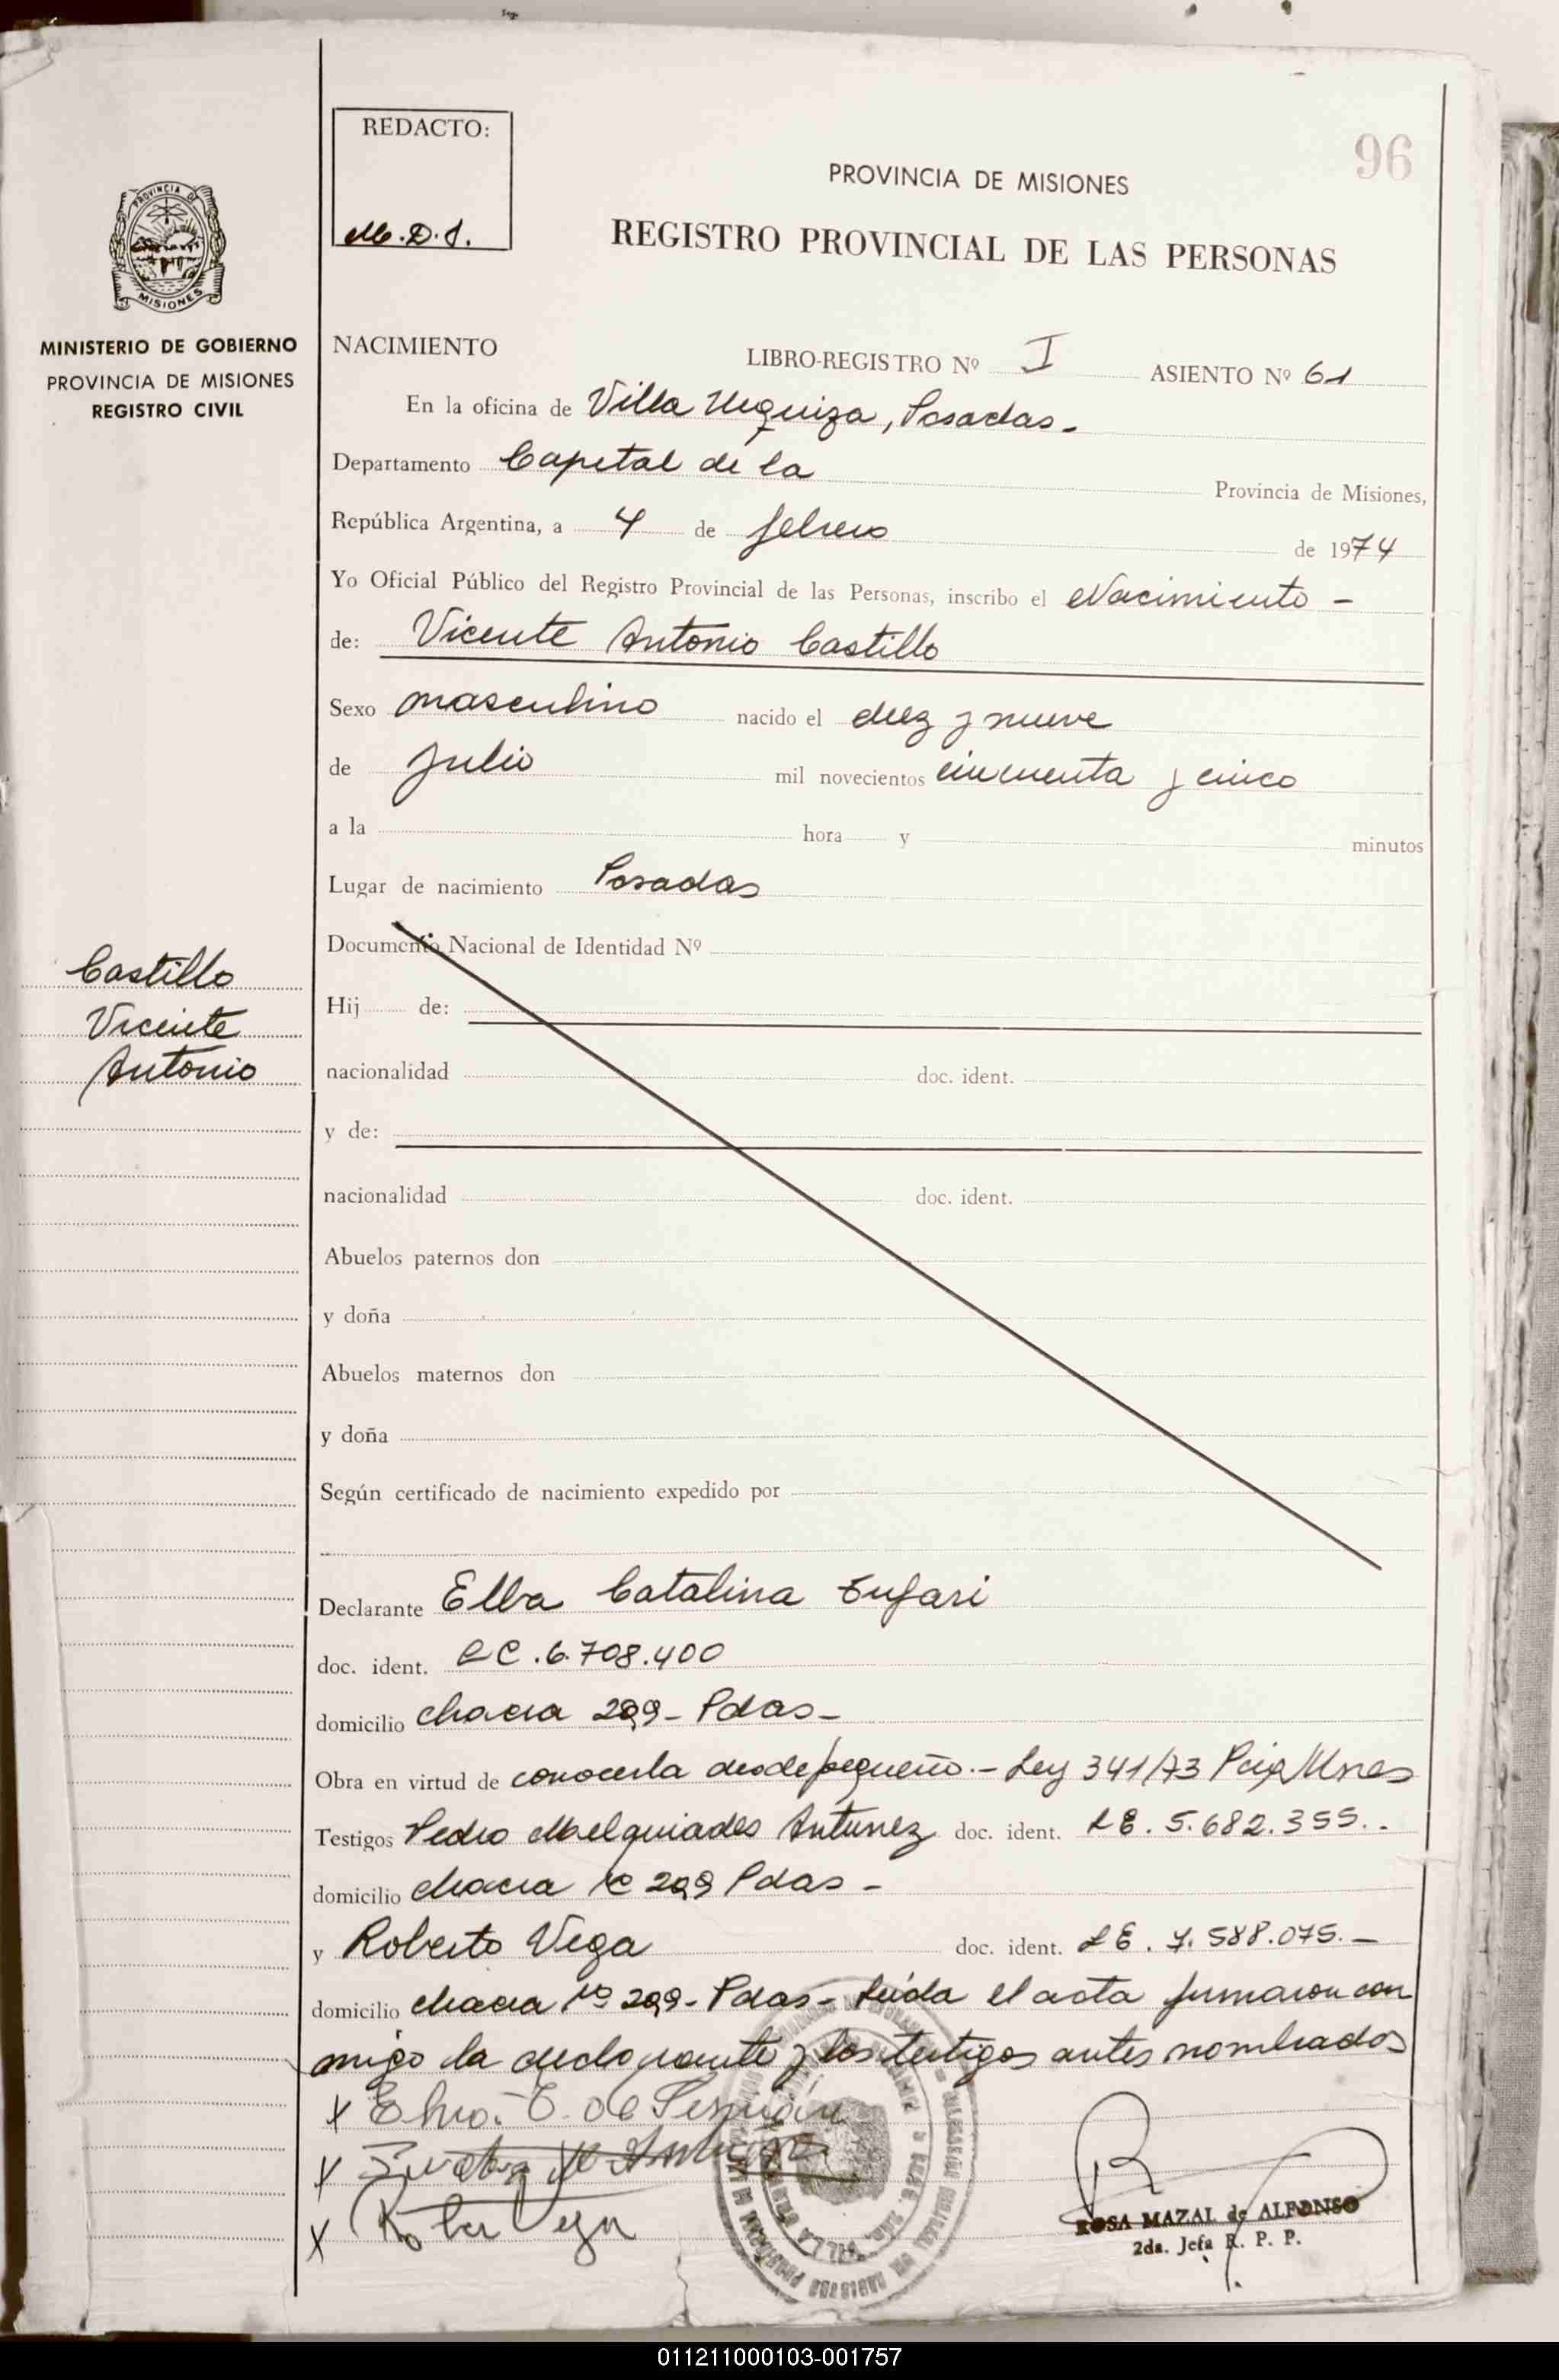 REDACTO:
M.D.J.
96
PROVINCIA DE MISIONES
REGISTRO PROVINCIAL DE LAS PERSONAS
PROVINCIA DE
MISIONES
MINISTERIO DE GOBIERNO
PROVINCIA DE MISIONES
REGISTRO CIVIL
NACIMIENTO LIBRO-REGISTRO Nº I ASIENTO Nº 61
En la oficina de Villa Urquiza, Posadas.
Departamento Capital de la Provincia de Misiones,
República Argentina, a 4 de febrero de 1974
Yo Oficial Público del Registro Provincial de las Personas, inscribo el Nacimiento -
de: Vicente Antonio Castillo
Sexo masculino nacido el diez y nueve
de Julio mil novecientos cincuenta y cinco
a la hora y minutos
Lugar de nacimiento Posadas
Documento Nacional de Identidad Nº
Castillo
Vicente
Antonio
Hij de:
nacionalidad doc. ident.
y de:
nacionalidad doc. ident.
Abuelos paternos don
y doña
Abuelos maternos don
y doña
Según certificado de nacimiento expedido por
Declarante Elba Catalina
doc. ident. LC. 6.708.400
domicilio chacra 299- Pdas-
Obra en virtud de conocerla desde pequeño.- Ley 341/73
Testigos Pedro Melquiades Antunez doc. ident. LE. 5.682.355..
domicilio chacra Nº 299 Pdas -
y Roberto Vega doc. ident. LE. 7.588.075.-
domicilio chacra Nº 299- Pdas- Leída el acta firmaron con
migo la declarante y los testigos antes nombrados
ROSA MAZAL de ALFONSO
2da. Jefa R. P. P.
011211000103-001757